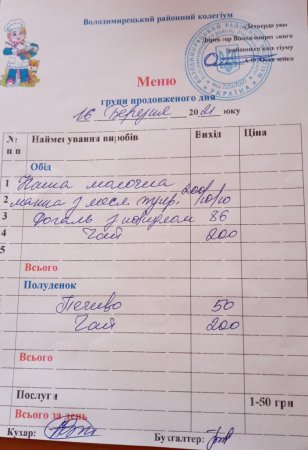 Володимирецький районний колегіум
"Затверджую"
Директор Володимирецького
районного колегіуму
УКРАЇНА
Меню
групи продовженого дня
16 Березня 2021 року
№ п п Найменування виробів Вихід Ціна
Обід
1 Каша молочна
2 манна з масл. 200/10/10
3 з повидлом 86
4 Чай 200
5
Всього
Полуденок
Печиво 50
Чай 200
Всього
Послуги 1-50 грн
Всього за день
Кухар: Бухгалтер: